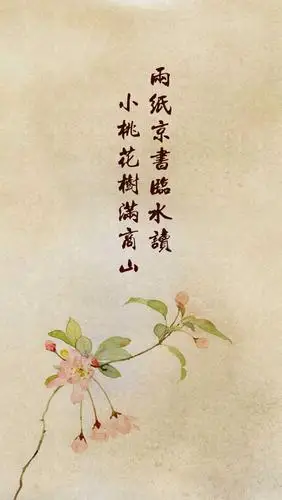 兩紙京書臨水讀
小桃花樹滿商山